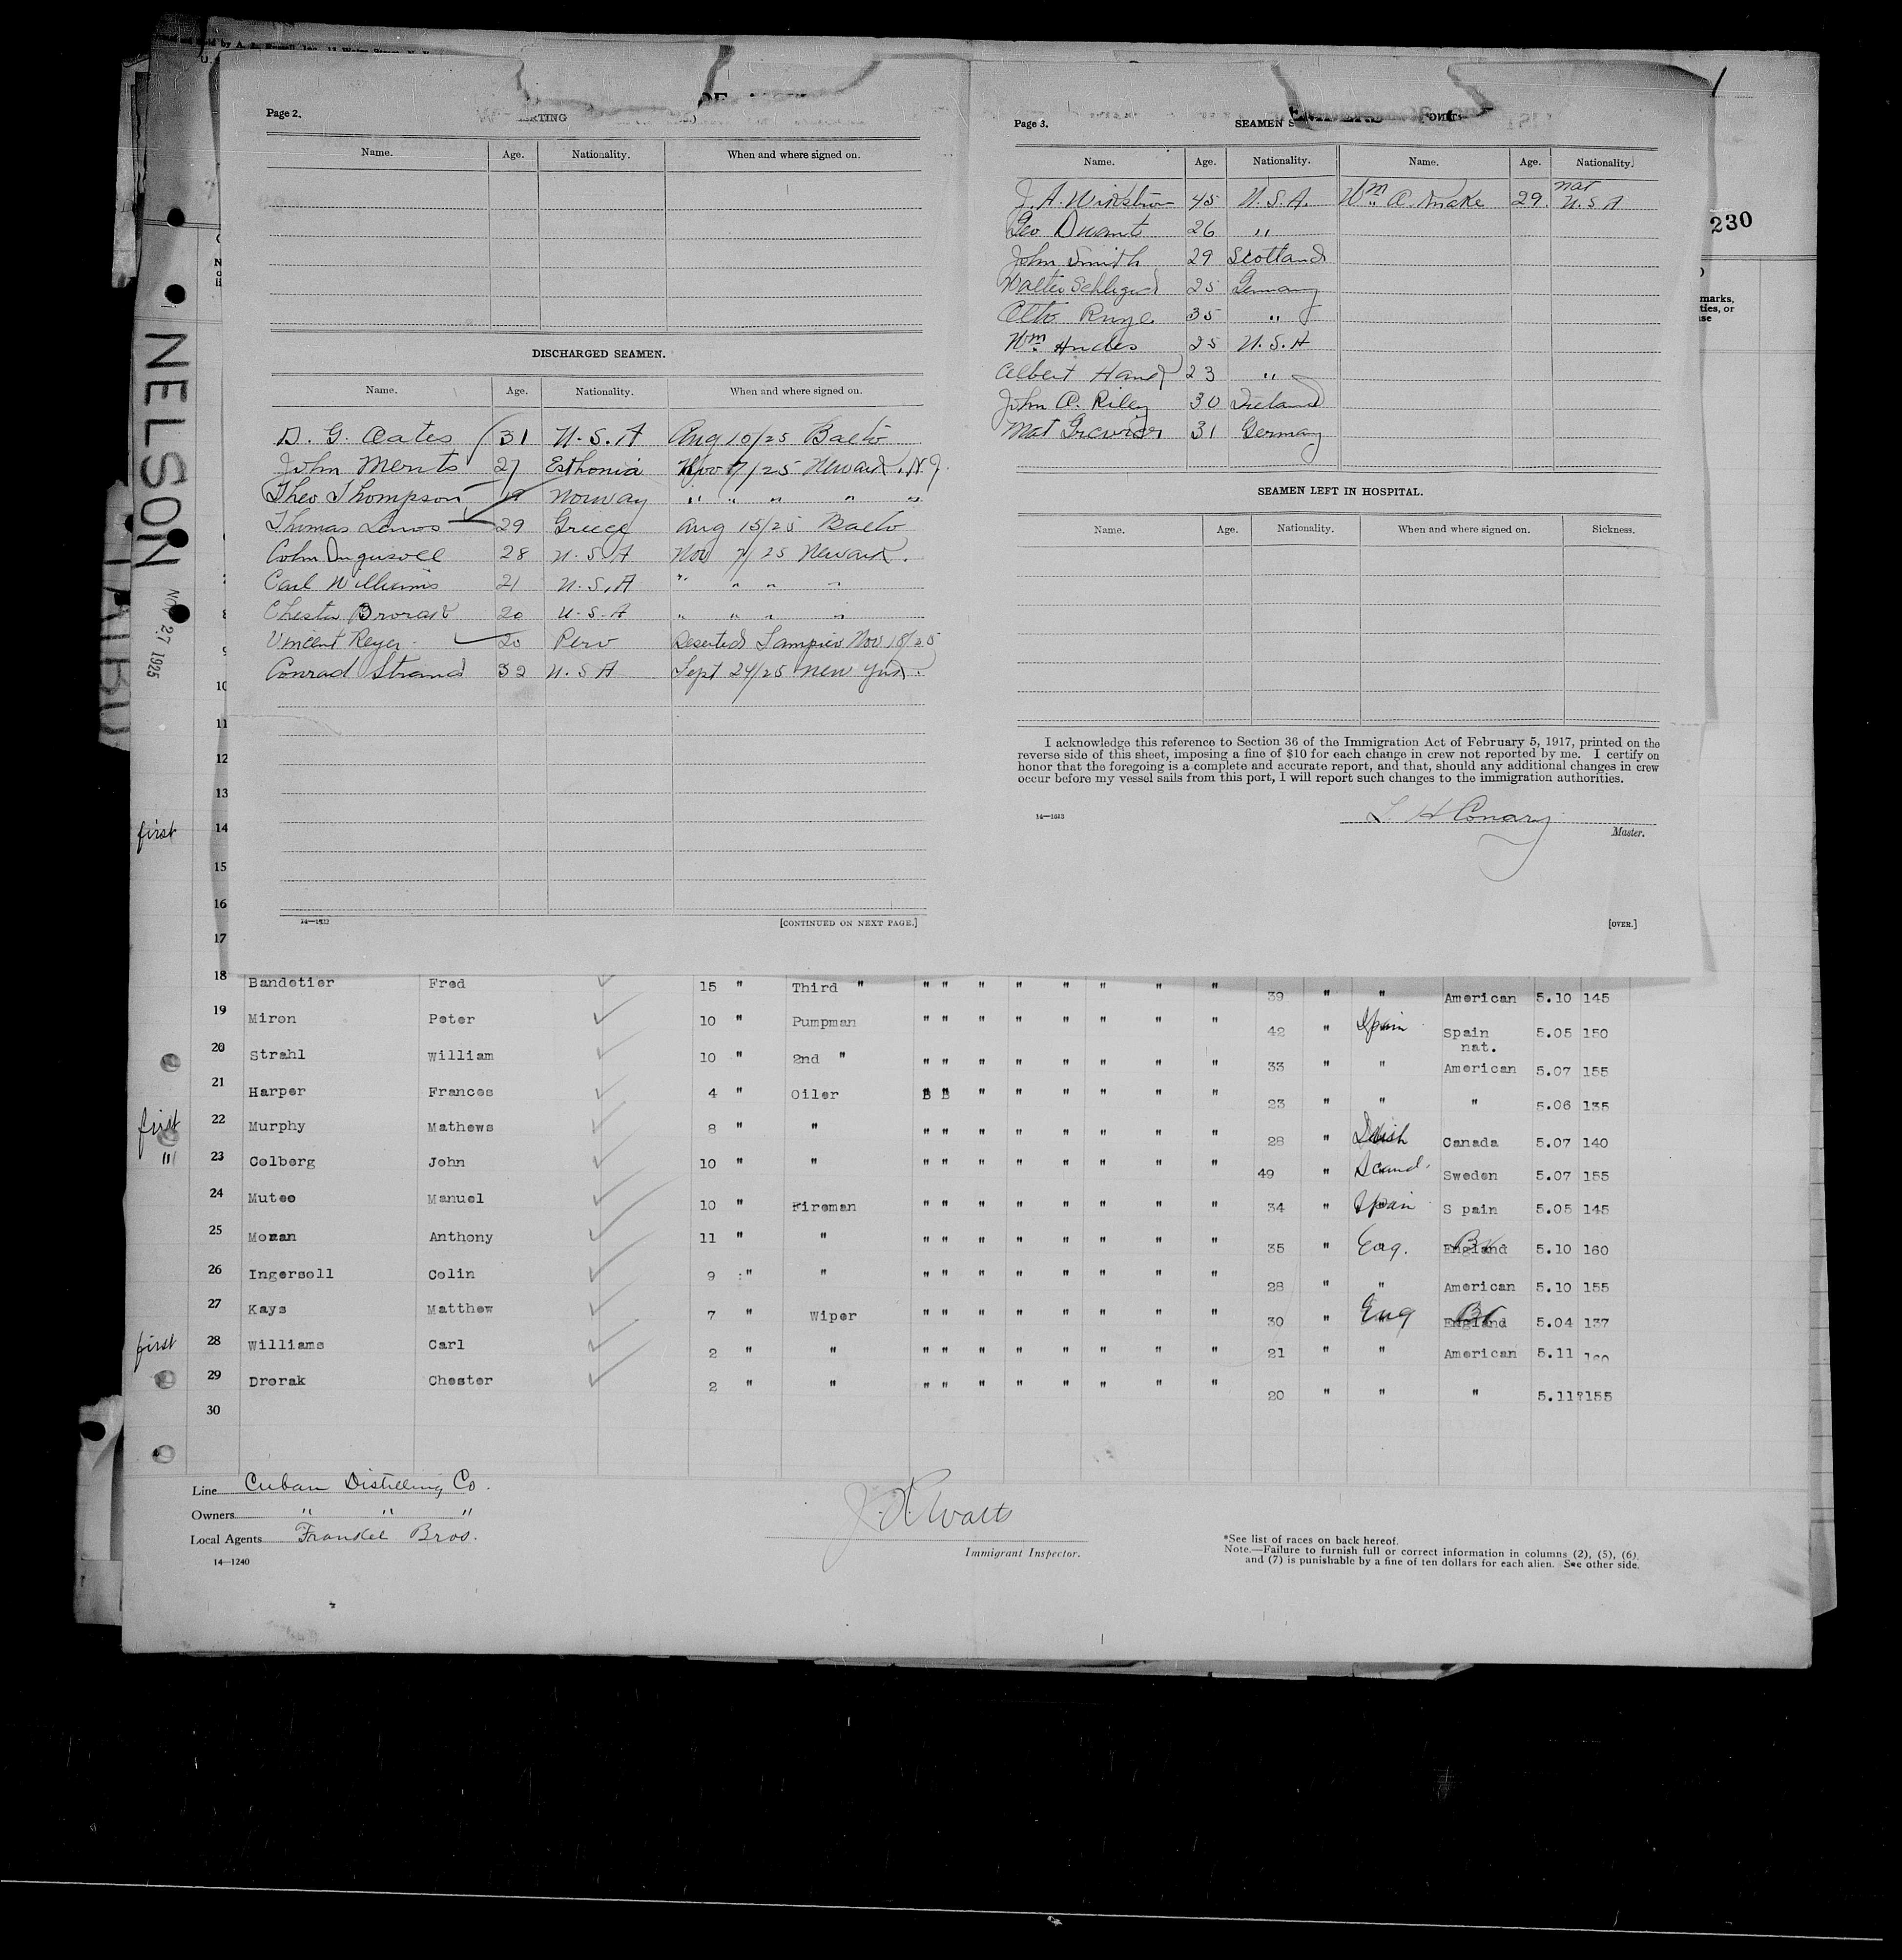 Page 2.
Name. Age. Nationality. When and where signed on.
DISCHARGED SEAMEN.
Name. Age. Nationality. When and where signed on.
D. G. Oates 31 U.S.A Aug 10/25 Balto
John Ments 27 Esthonia Nov 7/25 Newark, N.J.
Theo Thompson 19 Norway " " " " "
Thomas 29 Greece Aug 15/25 Balto
Colin Ingersoll 28 U.S.A Nov 7/25 Newark.
Carl Williams 21 U.S.A " " " "
Chester 20 U.S.A " " " "
Vincent Reyer 20 Peru Deserted Tampico Nov 18/25
Conrad Strand 32 U.S.A Sept 24/25 New York.
14—1633
[CONTINUED ON NEXT PAGE.]
Page 3.
SEAMEN
Name. Age. Nationality. Name. Age. Nationality.
J. A. 45 U.S.A. Wm. A. 29. nat U.S A
Geo 26 "
John Smith 29 Scotland
Walter 25 Germany
Otto Ruge 35 "
Wm 25 U.S.A
Albert Hand 23 "
John A. Riley 30 Ireland
Mat 31 Germany
SEAMEN LEFT IN HOSPITAL.
Name. Age. Nationality. When and where signed on. Sickness.
I acknowledge this reference to Section 36 of the Immigration Act of February 5, 1917, printed on the
reverse side of this sheet, imposing a fine of $10 for each change in crew not reported by me. I certify on
honor that the foregoing is a complete and accurate report, and that, should any additional changes in crew
occur before my vessel sails from this port, I will report such changes to the immigration authorities.
L. H Conary
14—1633
Master.
[OVER.]
230
marks,
ties, or
NELSON
NOV 27 1925
10
11
12
13
first 14
15
16
17
18 Bandetier Fred 15 " Third " " " " " " " " " 39 " " American 5.10 145
19 Miron Peter 10 " Pumpman " " " " " " " " 42 " Spain Spain 5.05 150
nat.
20 Strahl William 10 " 2nd " " " " " " " " " 33 " " American 5.07 155
21 Harper Frances 4 " Oiler " " " " " " " " 23 " " " 5.06 135
first 22 Murphy Mathews 8 " " " " " " " " " " 28 " Irish Canada 5.07 140
" 23 Colberg John 10 " " " " " " " " " " 49 " Scand. Sweden 5.07 155
24 Muteo Manuel 10 " Fireman " " " " " " " " 34 " Spain S pain 5.05 145
25 Moran Anthony 11 " " " " " " " " " " 35 " Eng. England Br 5.10 160
26 Ingersoll Colin 9 :" " " " " " " " " " 28 " " American 5.10 155
27 Kays Matthew 7 " Wiper " " " " " " " " 30 " Eng England Br 5.04 137
first 28 Williams Carl 2 " " " " " " " " " " 21 " " American 5.11 160
29 Drorak Chester 2 " " " " " " " " " " 20 " " " 5.11 155
30
Line Cuban Distilling Co.
Owners " " "
Local Agents Frankel Bros.
14—1240
J. H. Watts
Immigrant Inspector.
*See list of races on back hereof.
Note.—Failure to furnish full or correct information in columns (2), (5), (6)
and (7) is punishable by a fine of ten dollars for each alien. See other side.